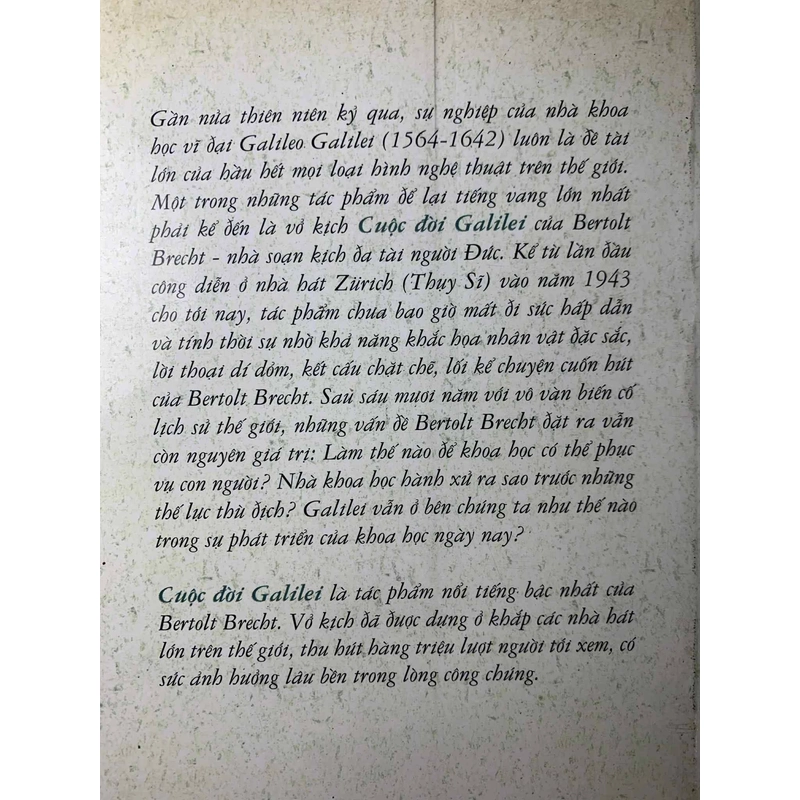 Gần nửa thiên niên kỷ qua, sự nghiệp của nhà khoa
học vĩ đại Galileo Galilei (1564-1642) luôn là đề tài
lớn của hầu hết mọi loại hình nghệ thuật trên thế giới.
Một trong những tác phẩm để lại tiếng vang lớn nhất
phải kể đến là vở kịch Cuộc đời Galilei của Bertolt
Brecht - nhà soạn kịch đa tài người Đức. Kể từ lần đầu
công diễn ở nhà hát Zürich (Thụy Sĩ) vào năm 1943
cho tới nay, tác phẩm chưa bao giờ mất đi sức hấp dẫn
và tính thời sự nhờ khả năng khắc họa nhân vật đặc sắc,
lời thoại dí dỏm, kết cấu chặt chẽ, lối kể chuyện cuốn hút
của Bertolt Brecht. Sau sáu mươi năm với vô vàn biến cố
lịch sử thế giới, những vấn đề Bertolt Brecht đặt ra vẫn
còn nguyên giá trị: Làm thế nào để khoa học có thể phục
vụ con người? Nhà khoa học hành xử ra sao trước những
thế lực thù địch? Galilei vẫn ở bên chúng ta như thế nào
trong sự phát triển của khoa học ngày nay?
Cuộc đời Galilei là tác phẩm nổi tiếng bậc nhất của
Bertolt Brecht. Vở kịch đã được dựng ở khắp các nhà hát
lớn trên thế giới, thu hút hàng triệu lượt người tới xem, có
sức ảnh hưởng lâu bền trong lòng công chúng.